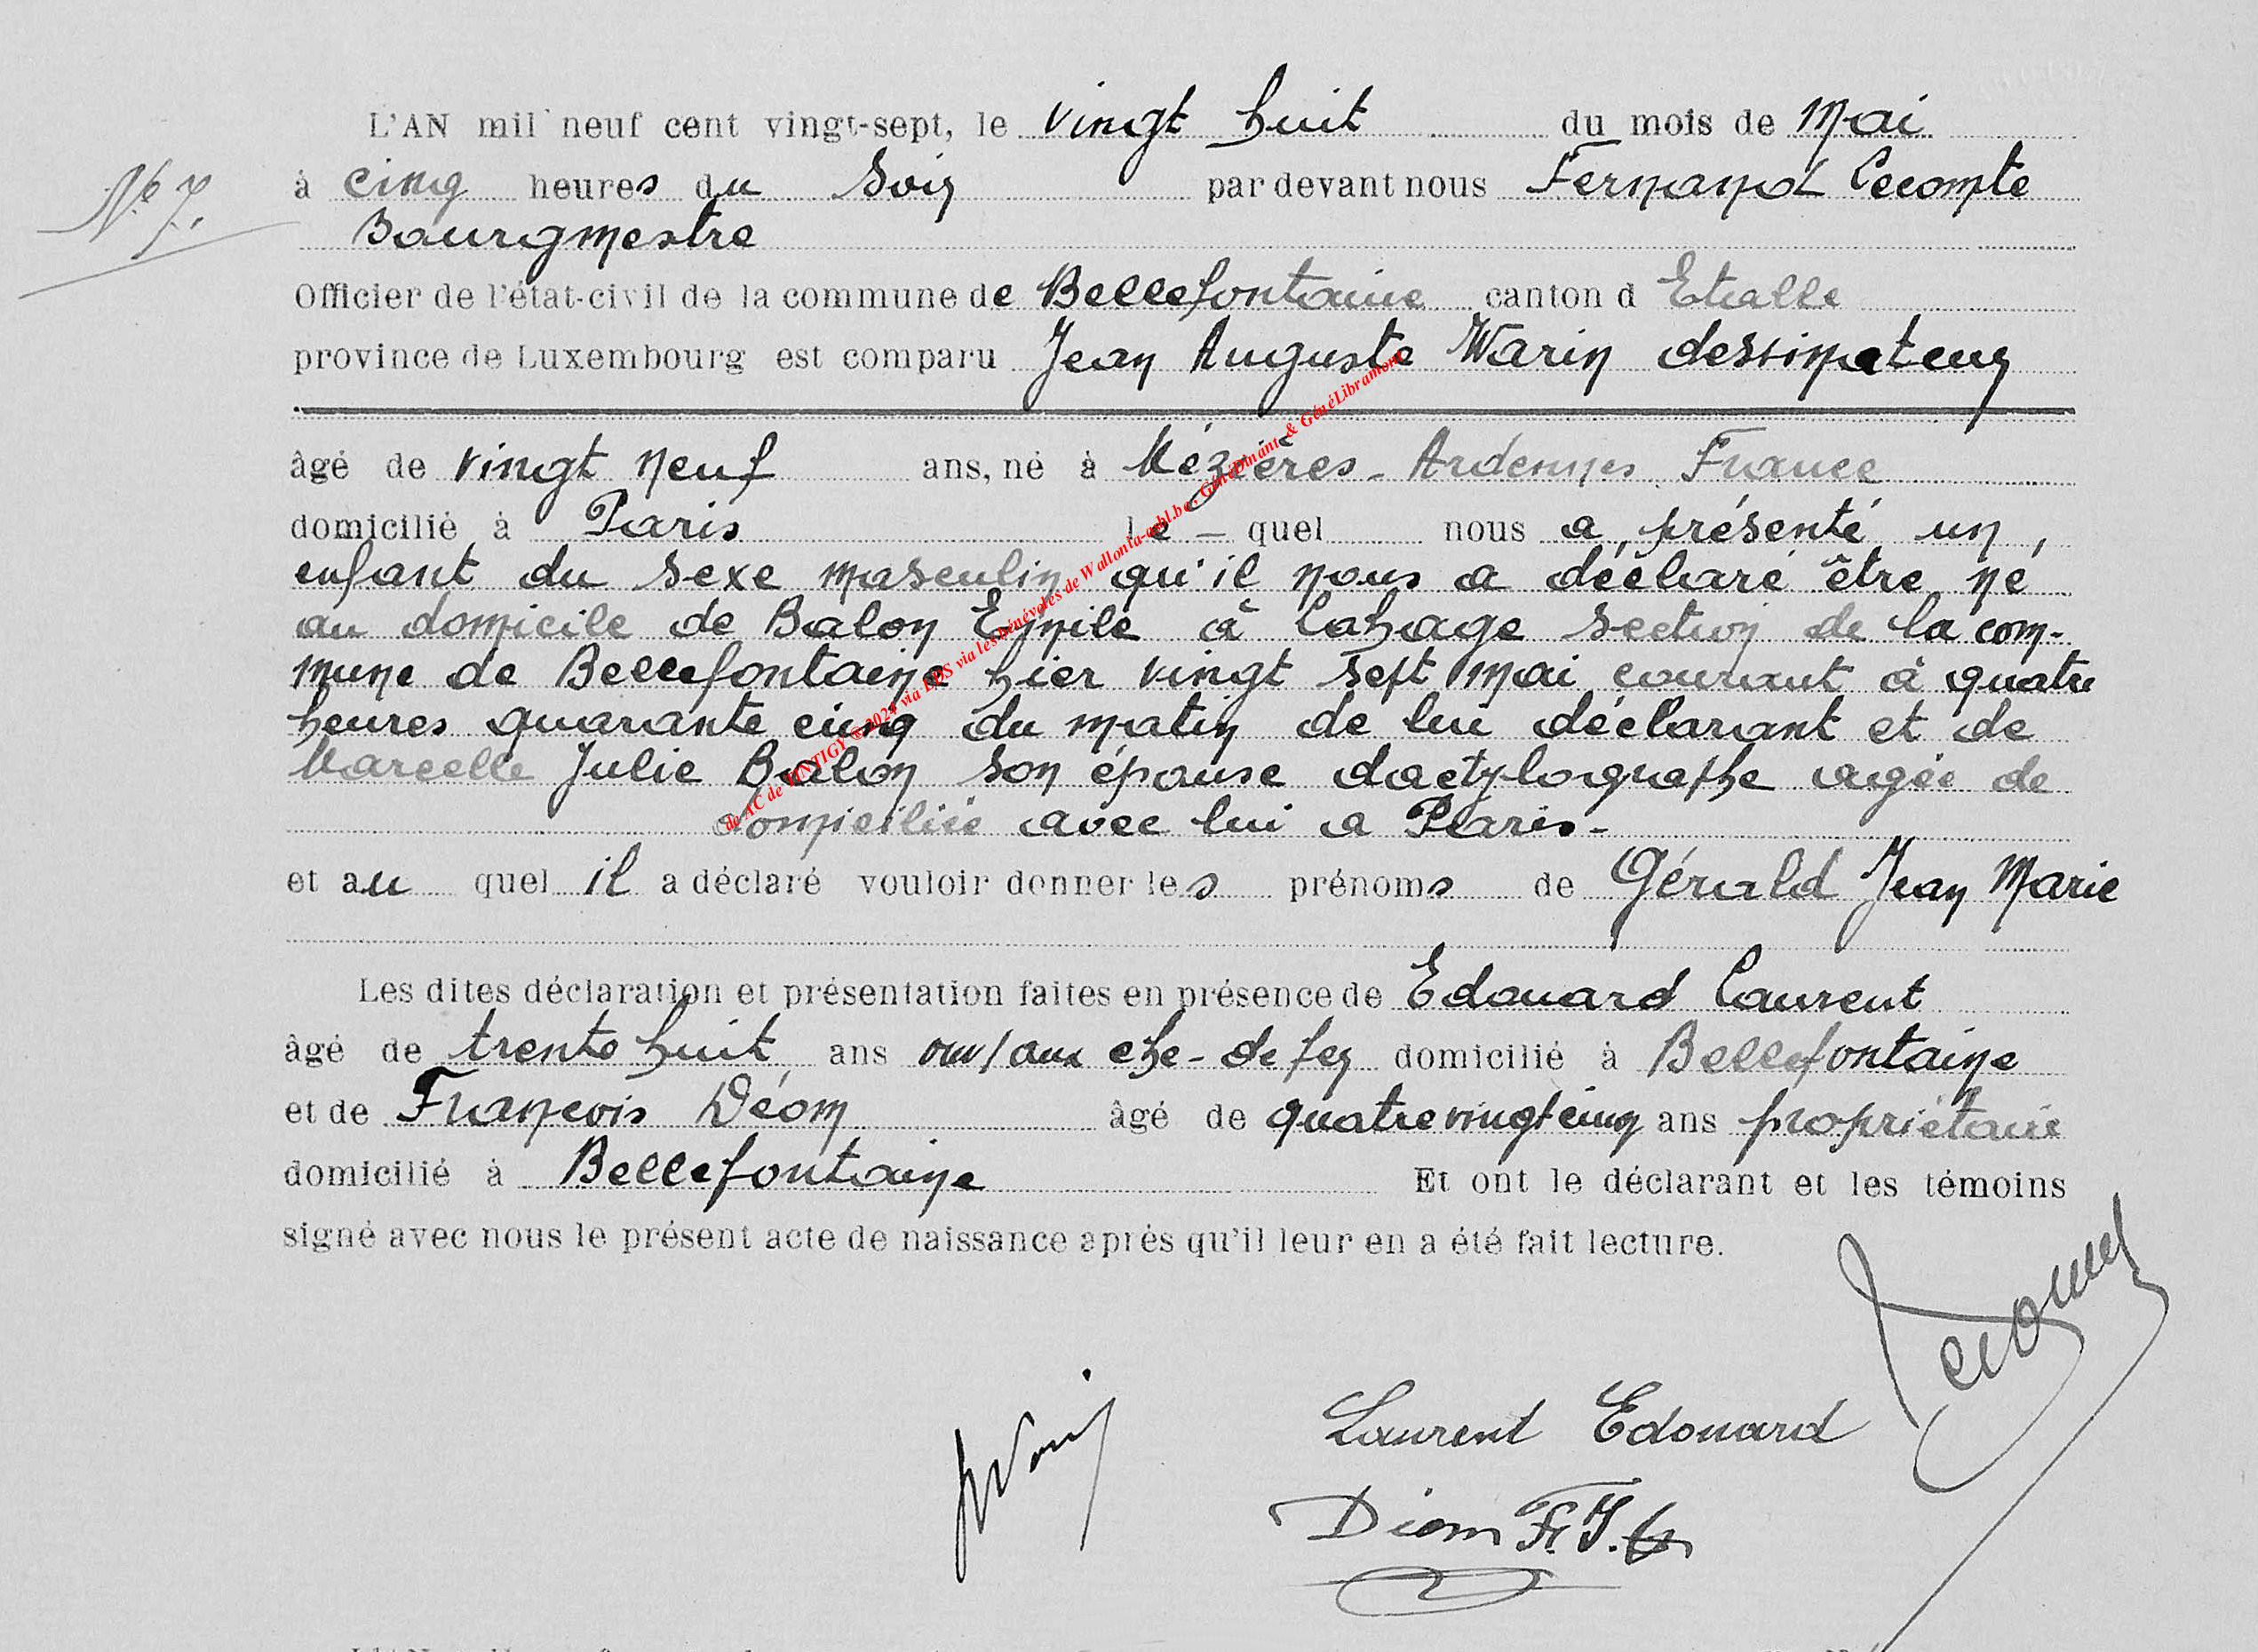 L'AN mil neuf cent vingt-sept, le vingt huit du mois de Mai
N° 7. à cinq heures du Soir par devant nous Fernand Lecomte
Bourgmestre
Officier de l'état-civil de la commune de Bellefontaine canton d Etalle
province de Luxembourg est comparu Jean Auguste Warin dessinateur
âgé de vingt neuf ans, né à Mézières - Ardennes France
domicilié à Paris le - quel nous a présenté un
enfant du sexe masculin qu'il nous a déclaré être né
au domicile de Balon Emile à Lahage section de la com-
mune de Bellefontaine hier vingt sept Mai courant à quatre
heures quarante cinq du matin de lui déclarant et de
Marcelle Julie Balon son épouse dactylographe agée de
domiciliée avec lui a Paris -
et au quel il a déclaré vouloir donner les prénoms de Gérald Jean Marie
Les dites déclaration et présentation faites en présence de Edouard Laurent
âgé de trente huit ans ouv/aux che - de fer domicilié à Bellefontaine
et de François Déom âgé de quatre vingt cinq ans propriétaire
domicilié à Bellefontaine Et ont le déclarant et les témoins
signé avec nous le présent acte de naissance après qu'il leur en a été fait lecture.
Laurent Edouard
de AC de TINTIGY ©2024 via LDS via les bénévoles de Wallonia-asbl.be, GénéDinant, & GénéLibramont